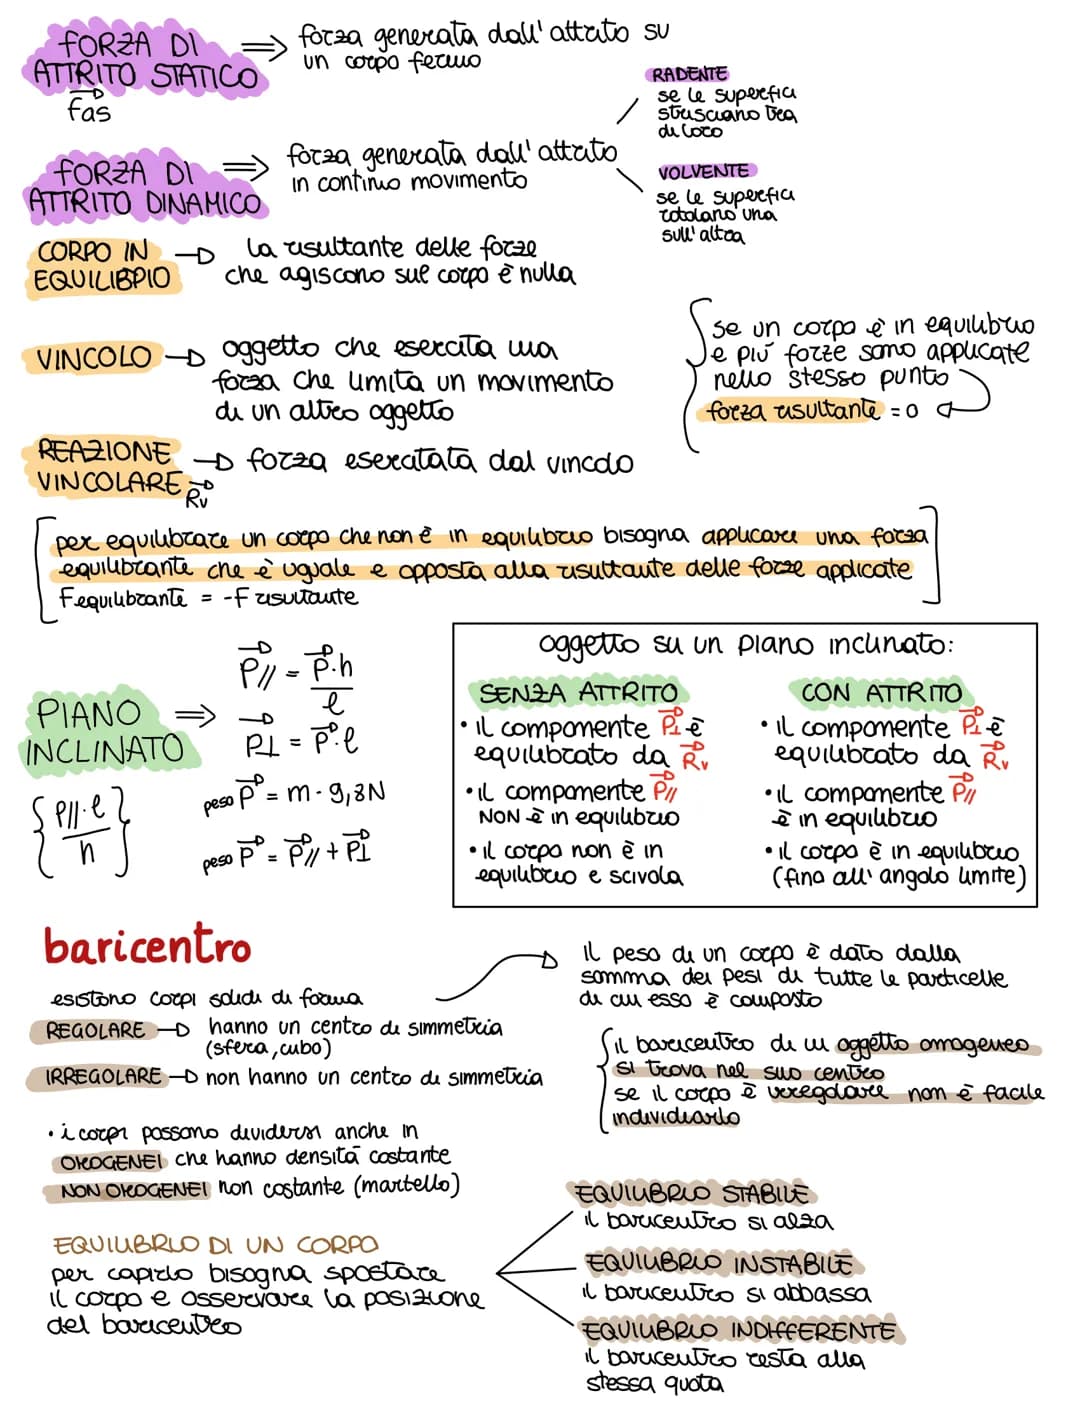 FORZA DI
ATTRITO STATICO
fas
⇒ forza generata dall'attrito su
un corpo fermo
FORZA DI
ATTRITO DINAMICO
⇒ forza generata dall'attrito
in continuo movimento
RADENTE
se le superfici
strusciano tra
di loro
VOLVENTE
se le superfici
rotolano una
sull'altra
CORPO IN
EQUILIBRIO
→ la risultante delle forze
che agiscono sul corpo è nulla
VINCOLO → oggetto che esercita una
forza che limita un movimento
di un altro oggetto
se un corpo è in equilibrio
e più forze sono applicate
nello stesso punto
forza risultante = 0
REAZIONE
VINCOLARE
Rv
→ forza esercitata dal vincolo
per equilibrare un corpo che non è in equilibrio bisogna applicare una forza
equilibrante che è uguale e opposta alla risultante delle forze applicate
Fequilibrante = -F risultante
PIANO
INCLINATO
⇒
{P//·l / h}
P// = P·h / l
P⊥ = P·l
peso P = m · 9,8N
peso P = P// + P⊥
oggetto su un piano inclinato:
SENZA ATTRITO
• il componente P⊥ è
equilibrato da Rv
• il componente P//
NON è in equilibrio
• il corpo non è in
equilibrio e scivola
CON ATTRITO
• il componente P⊥ è
equilibrato da Rv
• il componente P//
è in equilibrio
• il corpo è in equilibrio
(fino all'angolo limite)
baricentro
esistono corpi solidi di forma
REGOLARE → hanno un centro di simmetria
(sfera, cubo)
IRREGOLARE → non hanno un centro di simmetria
il peso di un corpo è dato dalla
somma dei pesi di tutte le particelle
di cui esso è composto
il baricentro di un oggetto omogeneo
si trova nel suo centro
se il corpo è irregolare non è facile
individuarlo
• i corpi possono dividersi anche in
OMOGENEI che hanno densità costante
NON OMOGENEI non costante (martello)
EQUILIBRIO DI UN CORPO
per capirlo bisogna spostare
il corpo e osservare la posizione
del baricentro
EQUILIBRIO STABILE
il baricentro si alza
EQUILIBRIO INSTABILE
il baricentro si abbassa
EQUILIBRIO INDIFFERENTE
il baricentro resta alla
stessa quota